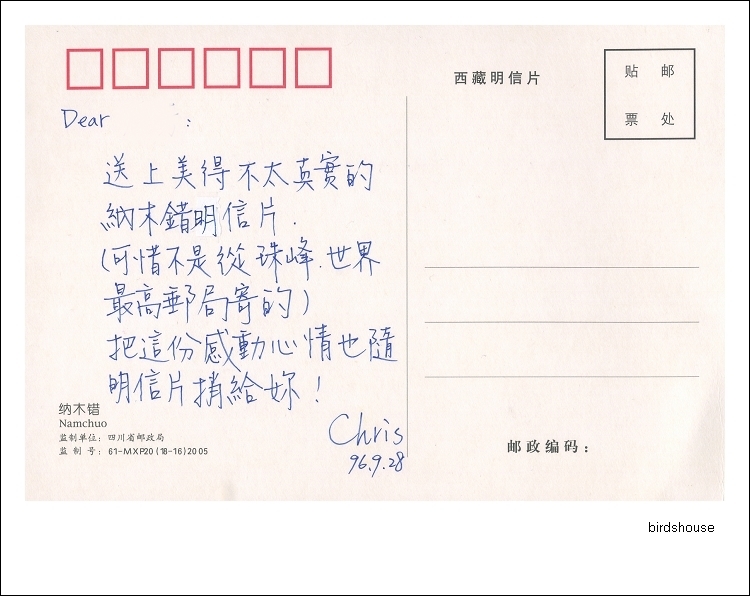 西藏明信片
贴 邮
票 处
Dear :
送上美得不太真實的
納木錯明信片.
(可惜不是從珠峰.世界
最高郵局寄的)
把這份感動心情也隨
明信片捎給妳!
Chris
96.9.28
纳木错
Namchuo
监制单位: 四川省邮政局
监 制 号: 61-MXP20(18-16)2005
邮政编码:
birdshouse